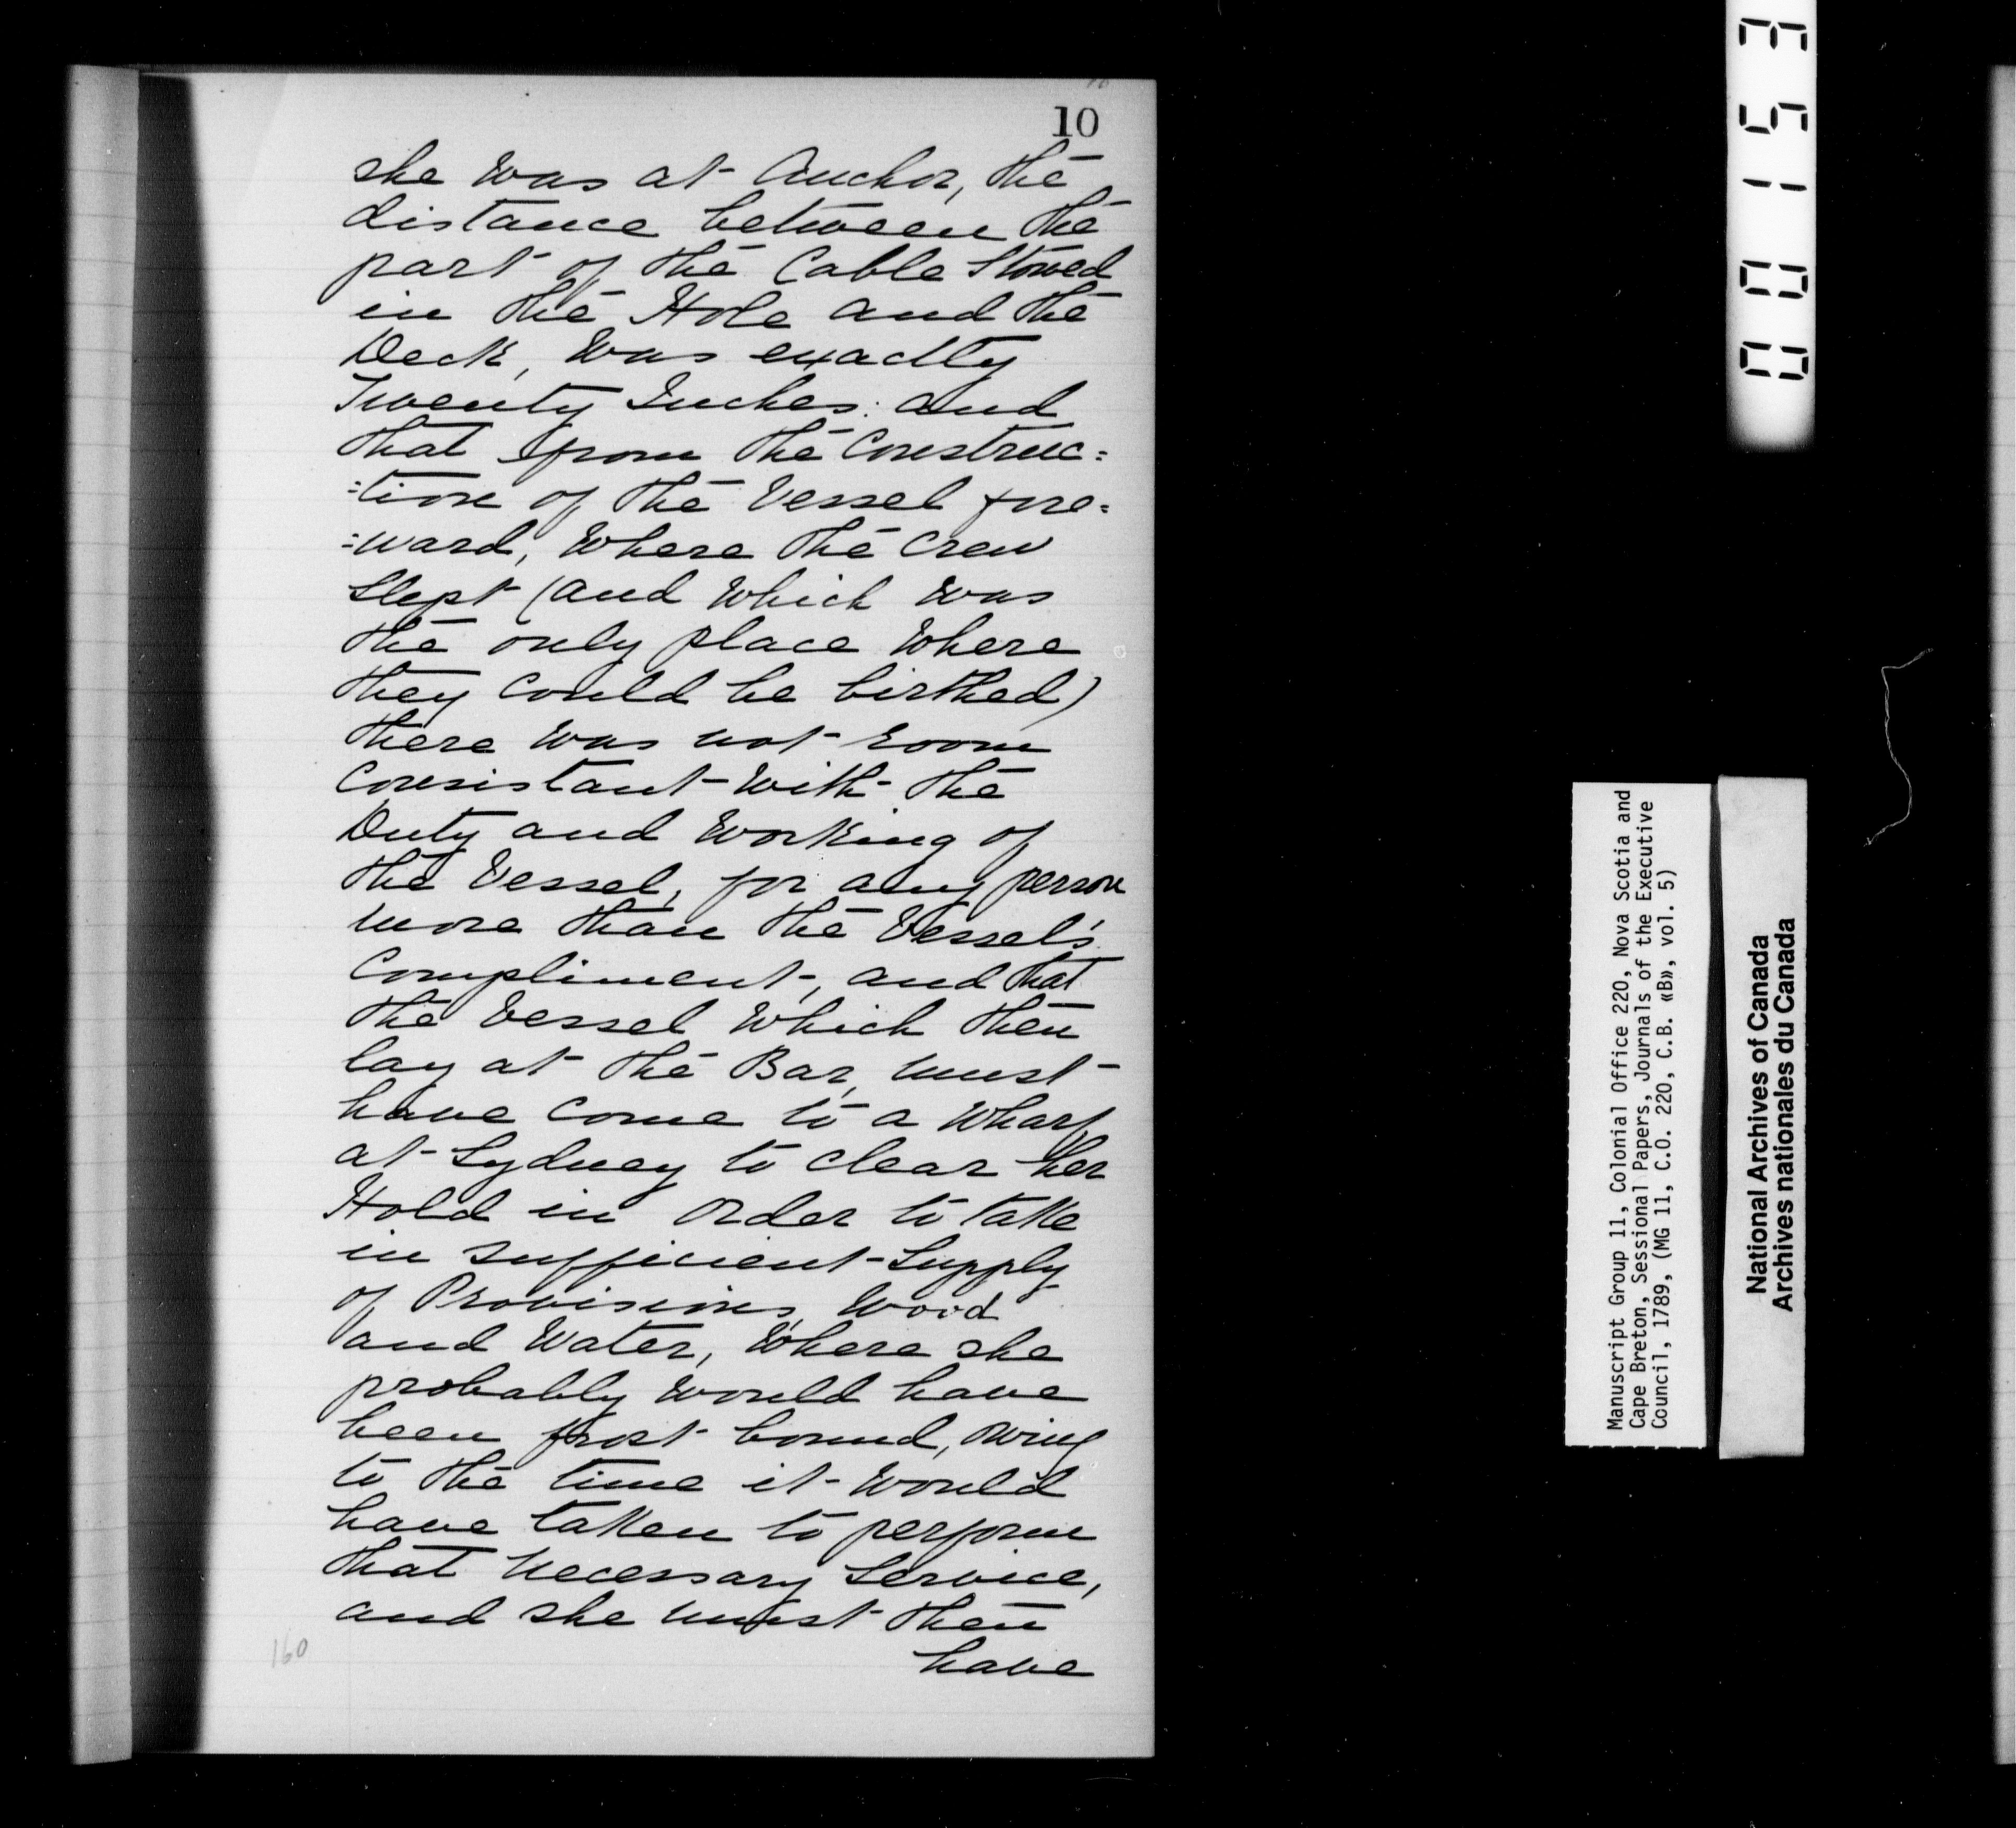 10
she was at Anchor, the
distance between the
part of the Cable Stowed
in the Hole and the
Deck, was exactly
Twenty Inches: and
that from the Construc=
=tion of the Vessel fore=
=ward, Where the Crew
Slept (and Which was
the only place Where
they Could be birthed)
there was not room
Consistant with the
Duty and Working of
the Vessel, for any person
more than the Vessel's
Compliment, and that
the Vessel Which then
lay at the Bar, must
have Come to a Wharf
at Sydney to clear her
Hold in Order to take
in sufficient Supply
of Provisions, Wood
and Water, Where she
probably would have
been frost bound, owing
to the time it would
have taken to perform
that necessary Service,
and she must then
have
160
00153
Manuscript Group 11, Colonial Office 220, Nova Scotia and
Cape Breton, Sessional Papers, Journals of the Executive
Council, 1789, (MG 11, C.O. 220, C.B. «B», vol. 5)
National Archives of Canada
Archives nationales du Canada